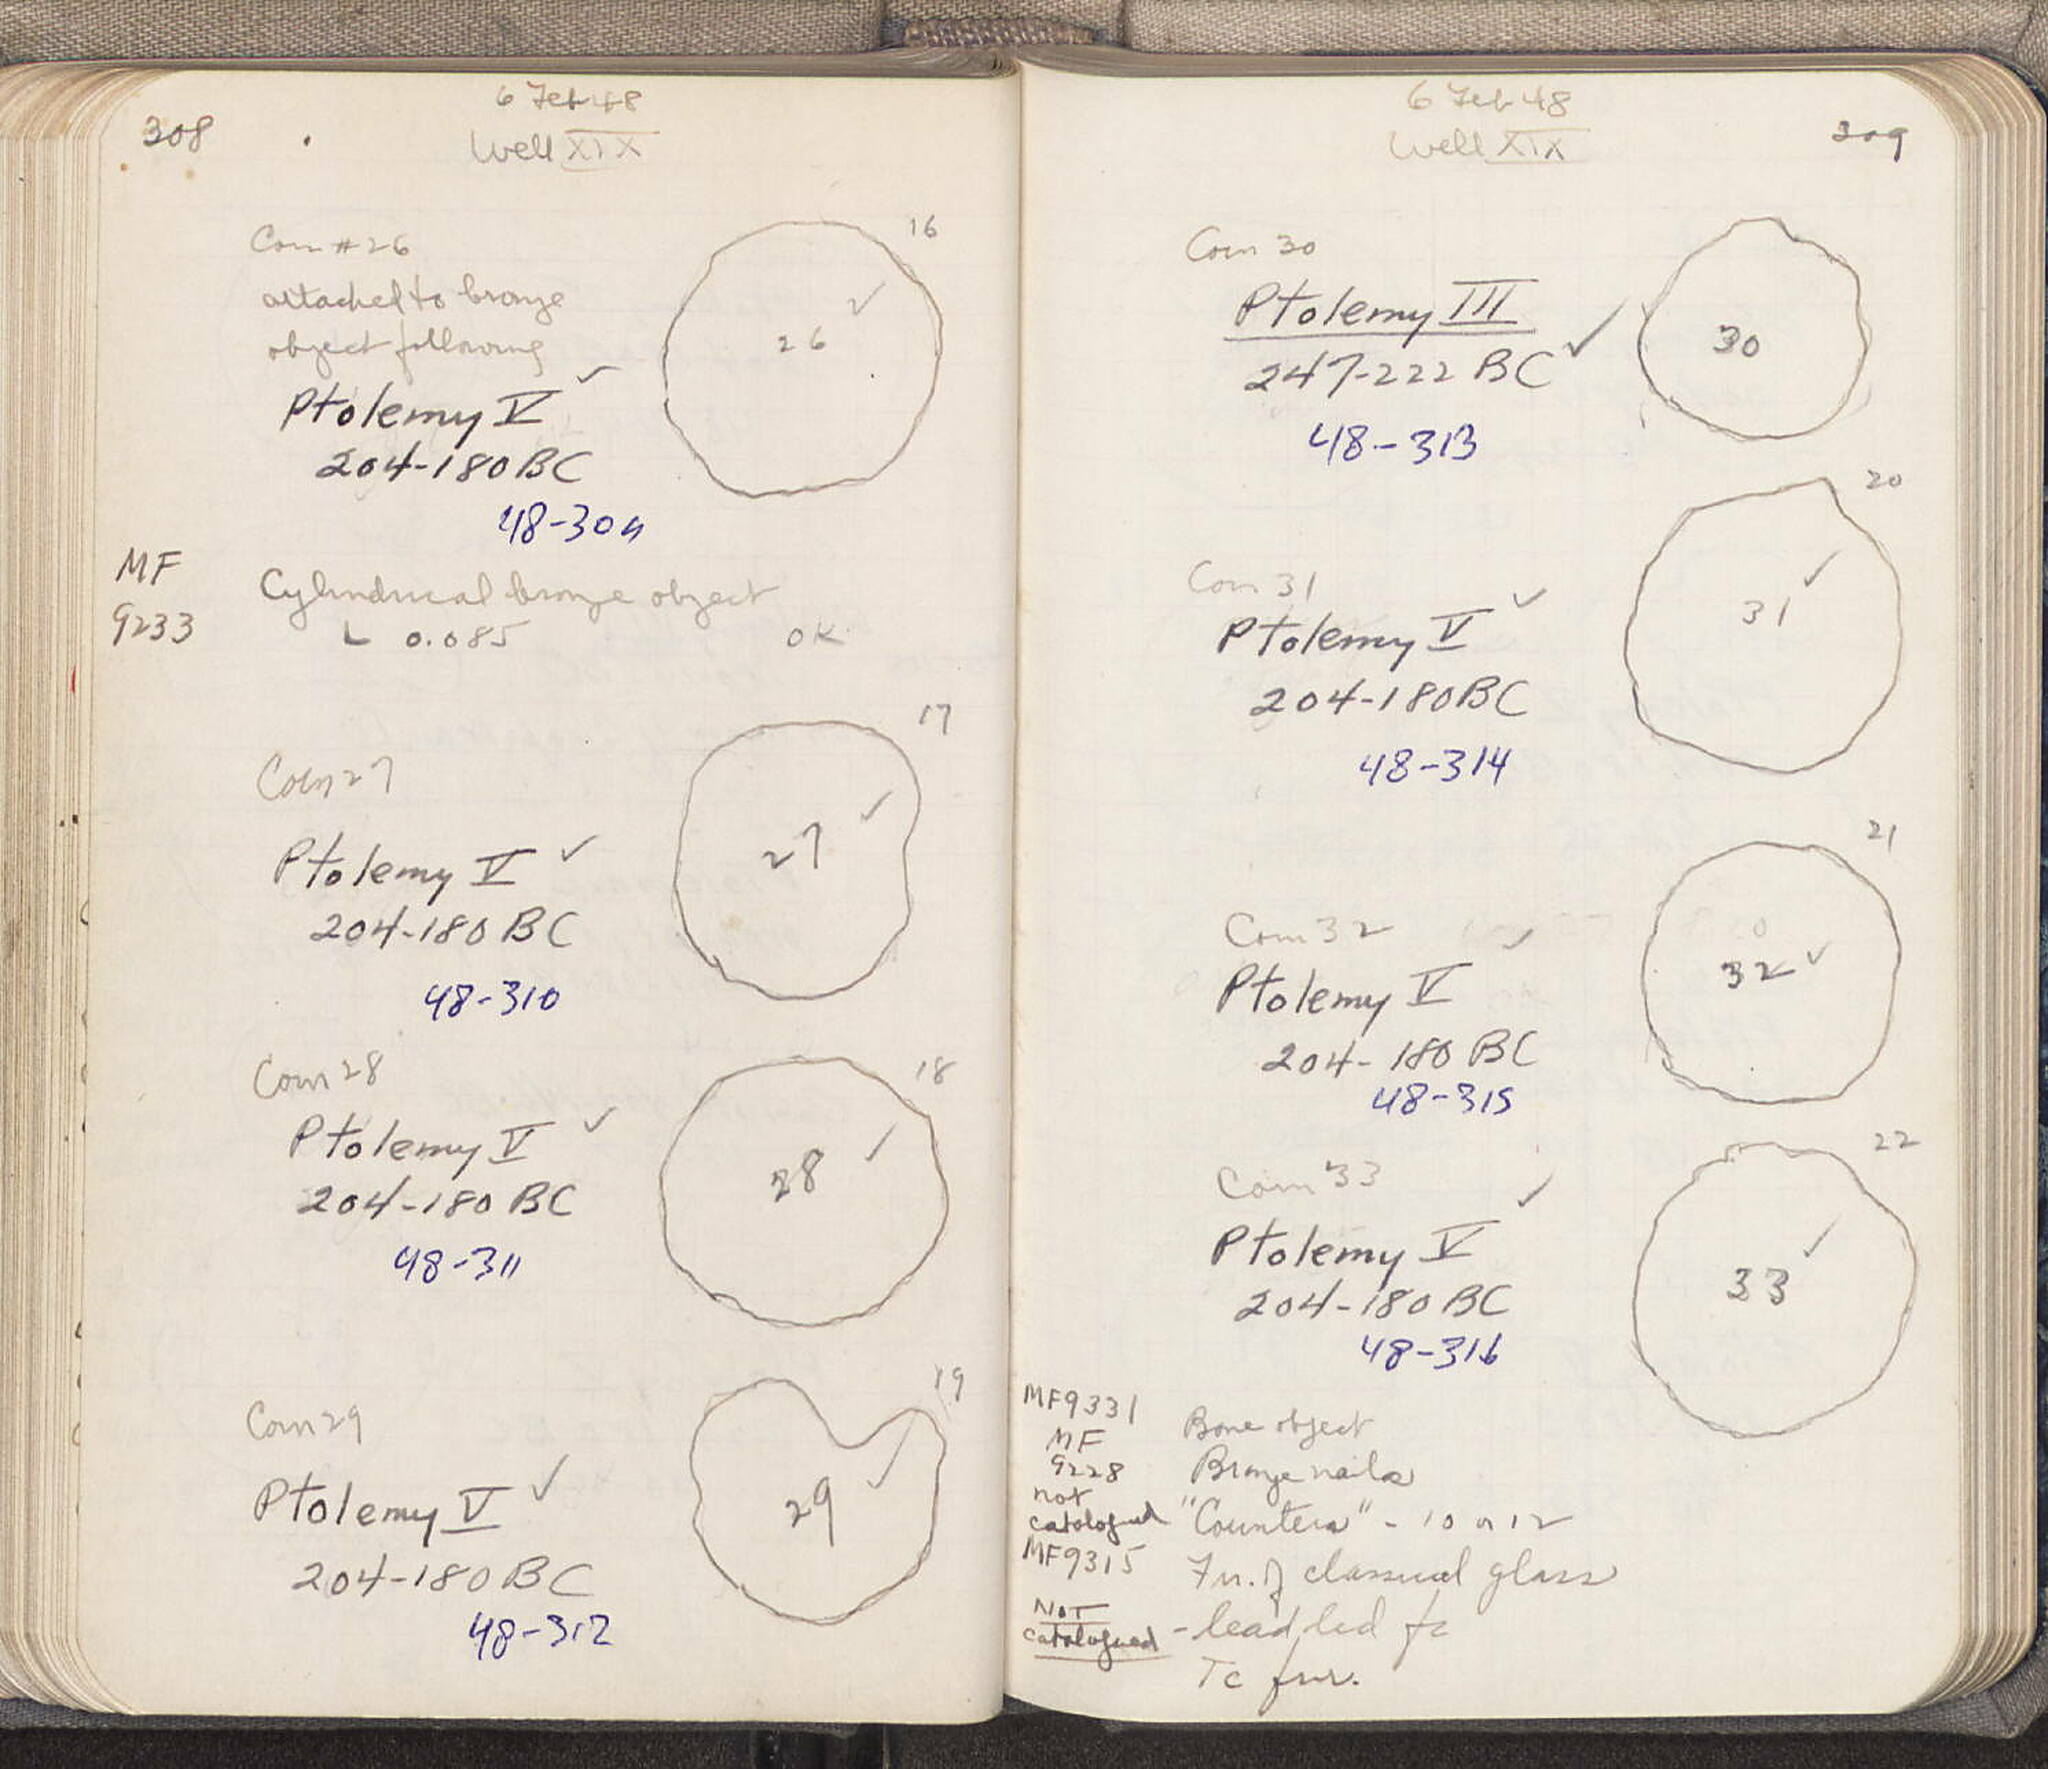 308
6 Feb 48
Well XIX
16
Coin #26
attached to bronze
object following
26
Ptolemy V
204-180 BC
48-309
MF
9233
Cylindrical bronze object
L 0.085 OK
17
Coin 27
27
Ptolemy V
204-180 BC
48-310
18
Coin 28
28
Ptolemy V
204-180 BC
48-311
19
Coin 29
29
Ptolemy V
204-180 BC
48-312
309
6 Feb 48
Well XIX
Coin 30
30
Ptolemy III
247-222 BC
48-313
20
Coin 31
31
Ptolemy V
204-180 BC
48-314
21
Coin 32
32
Ptolemy V
204-180 BC
48-315
22
Coin 33
33
Ptolemy V
204-180 BC
48-316
MF9331 Bone object
MF
9228 Bronze nails
not
catalogued "Counters" - 10 or 12
MF9315 of classical glass
Not
catalogued - lead
Tc